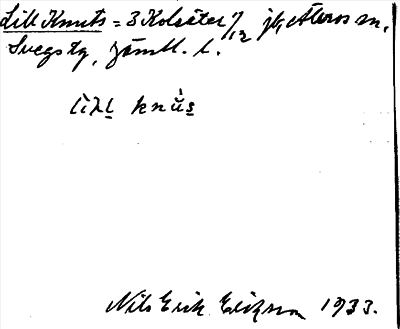 Lill Knuts = 3 Kolsäter 1/12 jb, Äteros sn,
Svegs tg, Jämtl. l.
lìλl̲ knǜs̲
Nils Erik Eriksson 1933.